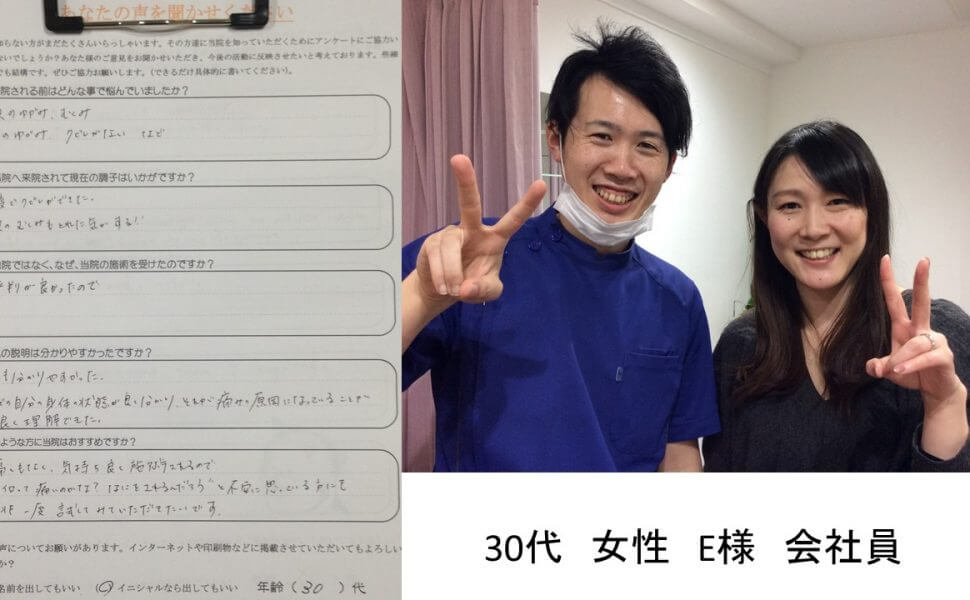 あなたの声を聞かせください
知らない方がまだたくさんいらっしゃいます。その方達に当院を知っていただくためにアンケートにご協力い
ないでしょうか？あなた様のご意見をお聞かせいただき、今後の活動に反映させたいと考えております。些細
でも結構です。ぜひご協力お願いします。(できるだけ具体的に書いてください)。
院される前はどんな事で悩んでいましたか？
のゆがみ、むくみ
のゆがみ、クビレがない など
院へ来院されて現在の調子はいかがですか？
でクビレができた。
のむくみもとれた気がする!!
院ではなく、なぜ、当院の施術を受けたのですか？
判が良かったので
の説明は分かりやすかったですか？
も分かりやすかった。
の自分の身体の状態が良く分かり、それが痛みの原因になっていることが
良く理解できた。
ような方に当院はおすすめですか？
もなく、気持ち良く施術されるので
って痛いのかな？なにをされるんだろう"と不安に思っている方にも
一度試してみていただきたいです。
声についてお願いがあります。インターネットや印刷物などに掲載させていただいてもよろしい
か？
名前を出してもいい (○)イニシャルなら出してもいい 年齢(30)代
30代 女性 E様 会社員